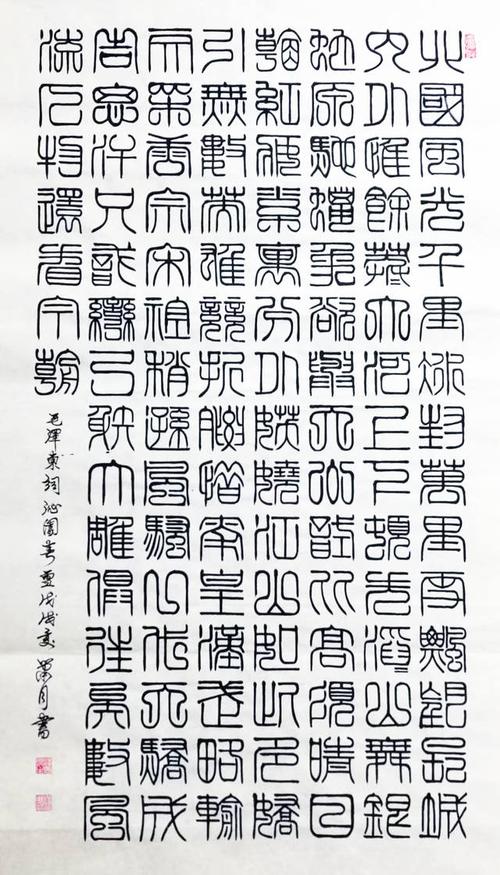 北國風光千里冰封萬里雪飄望長城
內外惟餘莽莽大河上下頓失滔滔山舞銀
蛇原馳蠟象欲與天公試比高須晴日
看紅裝素裹分外妖嬈江山如此多嬌
引無數英雄競折腰惜秦皇漢武略輸
文采唐宗宋祖稍遜風騷一代天驕成
吉思汗只識彎弓射大雕俱往矣數風
流人物還看今朝
毛澤東詞沁園春雪戊戌夏月書